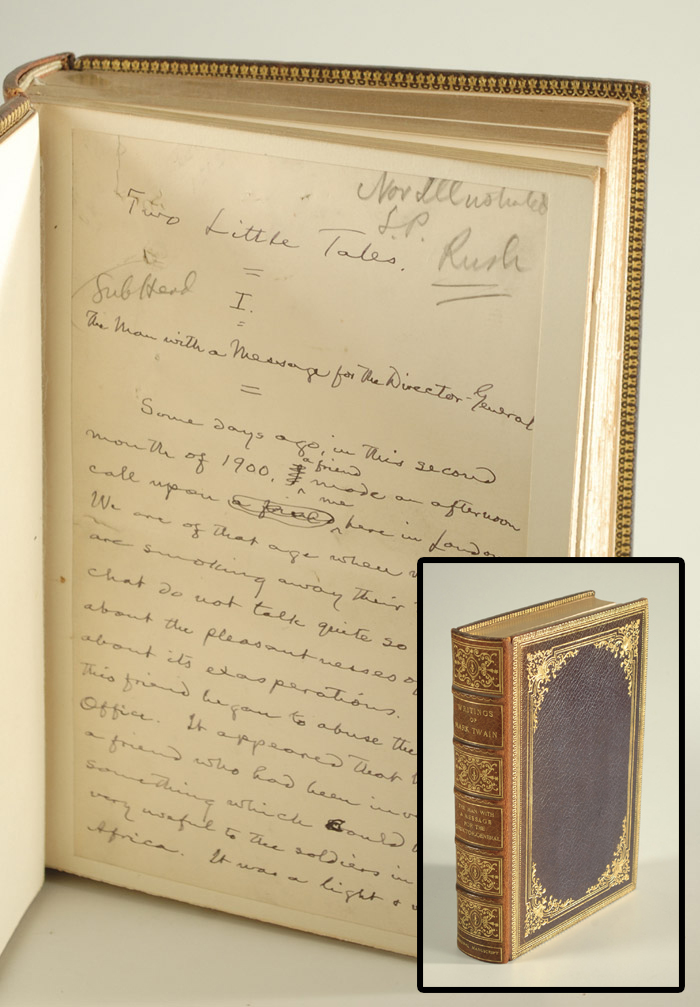 Not Illustrated
S.P.
Rush
Two Little Tales.
Sub Head
I.
The Man with a Message for the Director-General
Some days ago, in this second
a friend
month of 1900, made an afternoon
me
call upon here in London
We are of that age when
are smoking away their
chat do not talk quite so
about the pleasantnesses of
about its exasperations.
this friend began to abuse the
Office. It appeared that
a friend who had been
something which could
very useful to the soldiers in
Africa. It was a light &
WRITINGS
OF
MARK TWAIN
THE MAN WITH
A MESSAGE
FOR THE
DIRECTOR-GENERAL
MANUSCRIPT